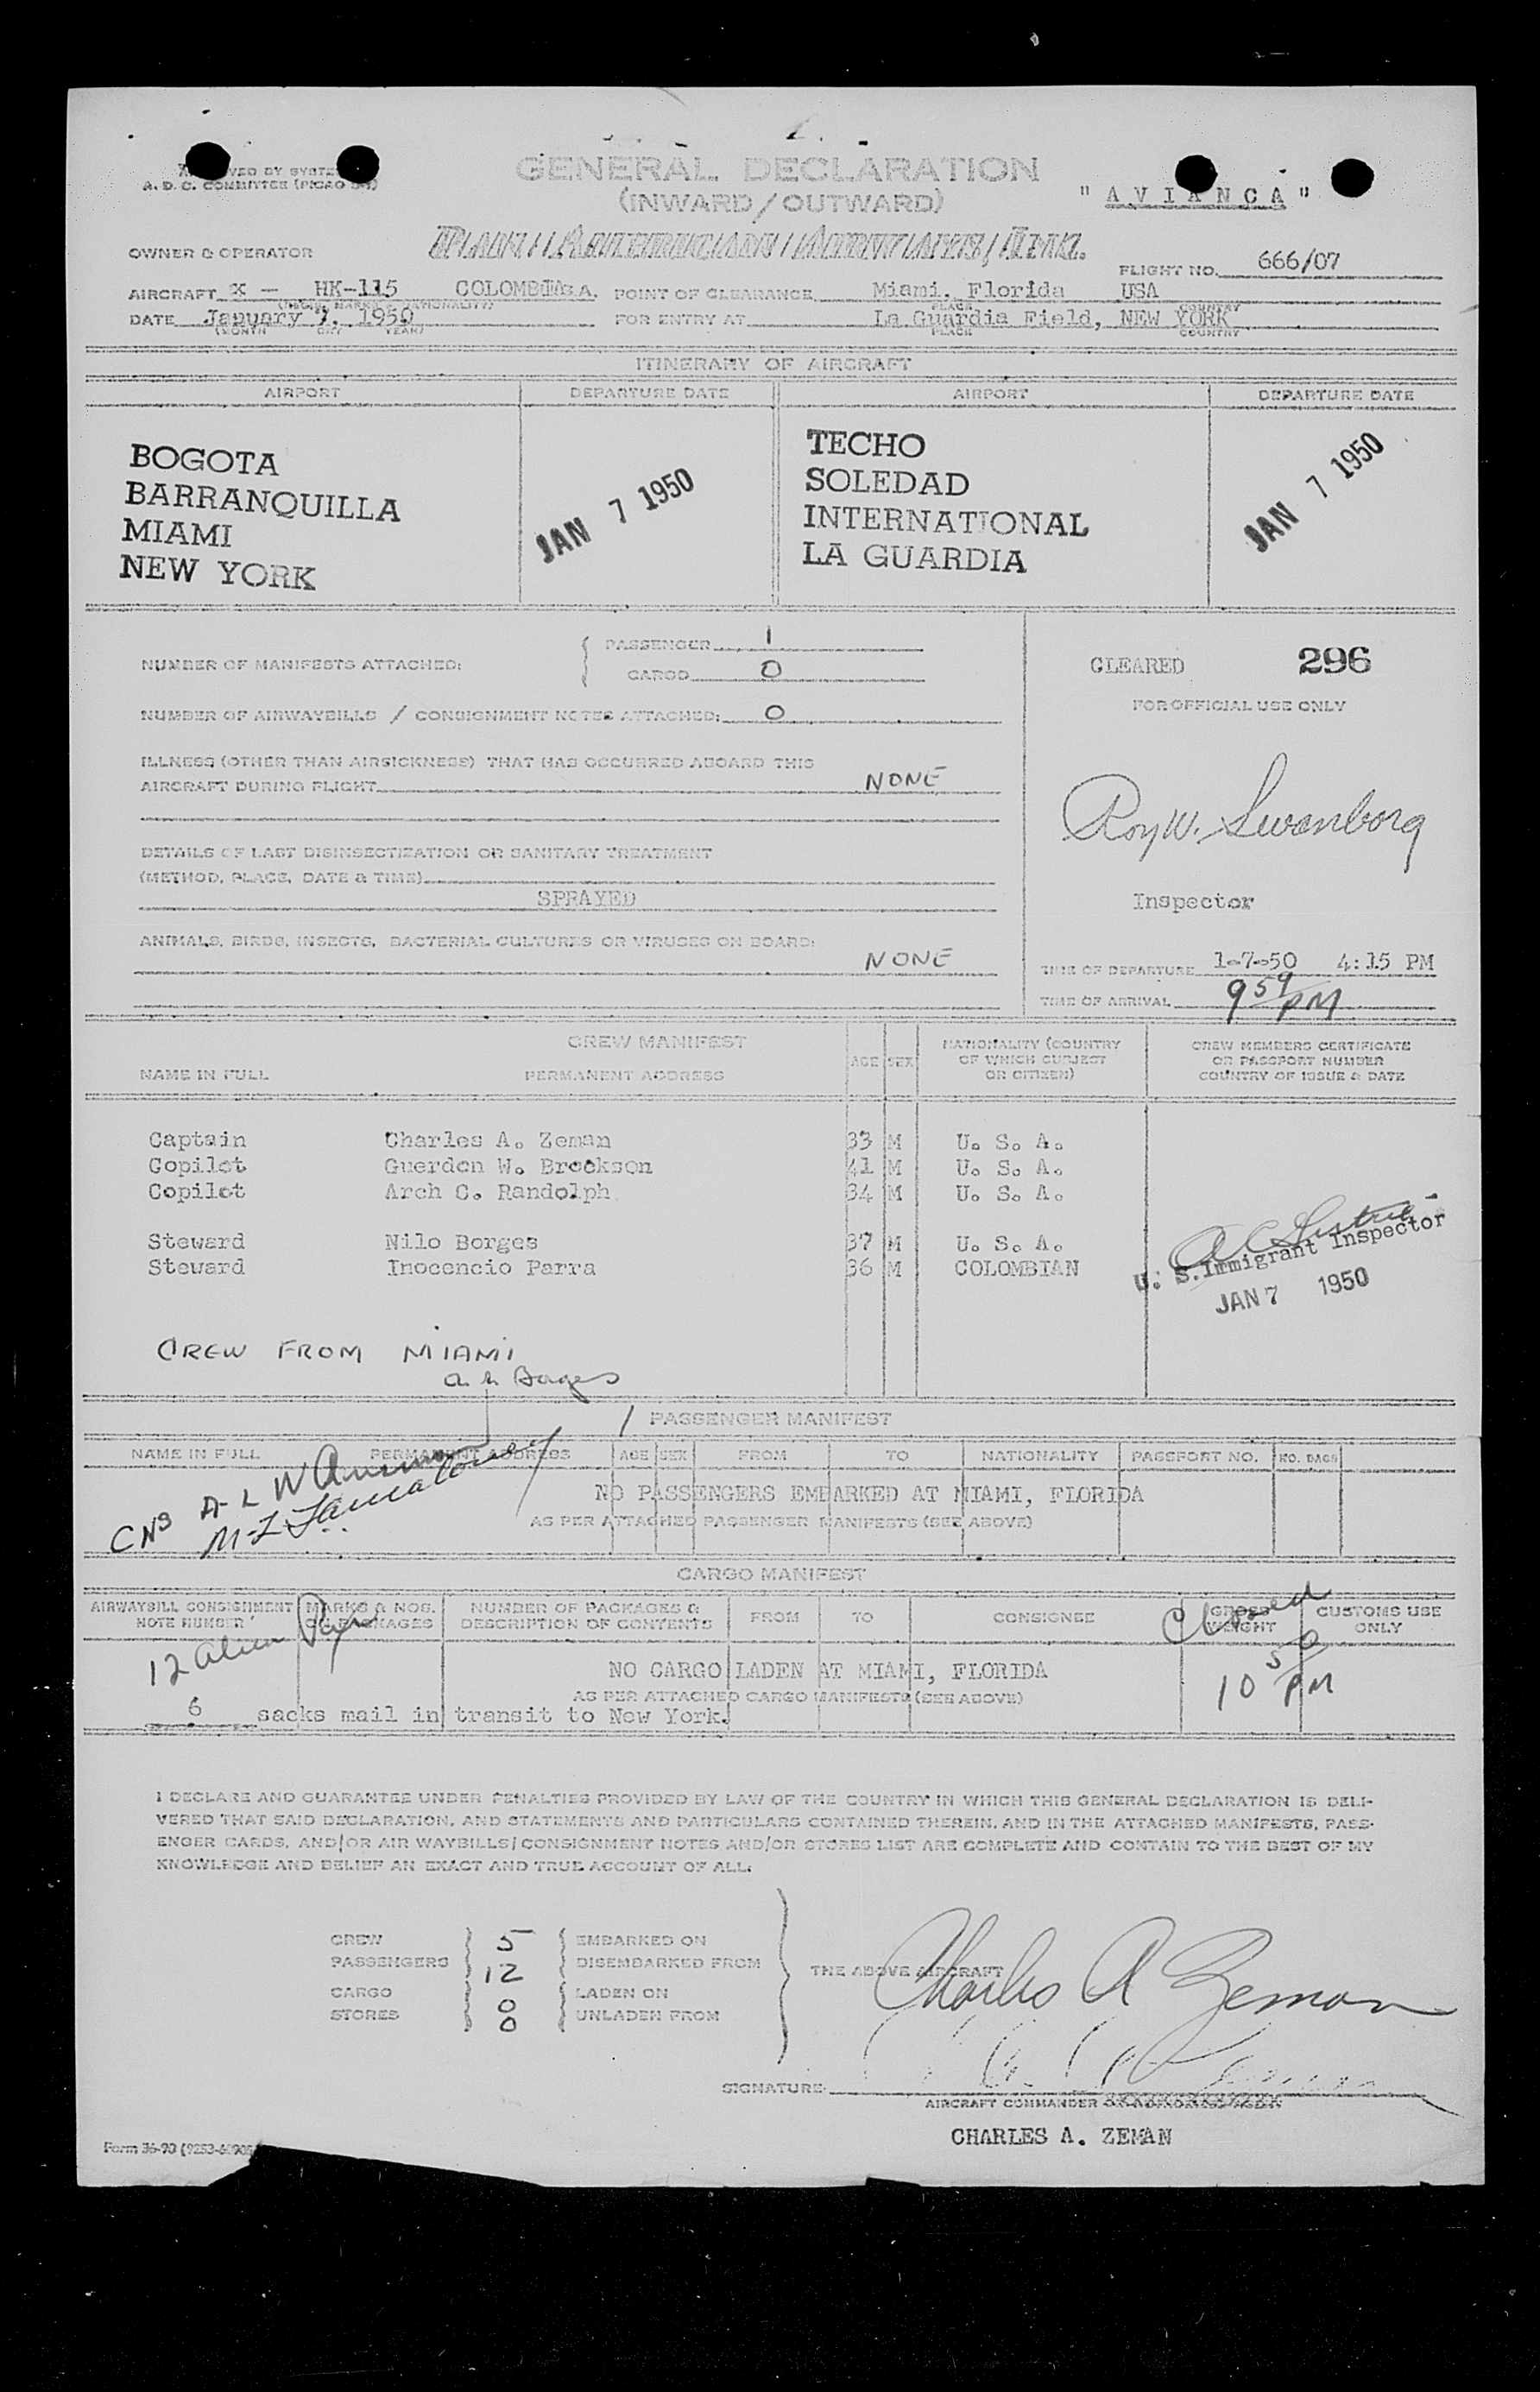 GENERAL DECLARATION
(INWARD/OUTWARD)
A. D. C. COMMITTEE (PICAO
" A V I A N C A "
OWNER & OPERATOR Pan American Airways, Inc.
FLIGHT NO. 666/07
AIRCRAFT X - HK-115 COLOMBIA POINT OF CLEARANCE Miami, Florida USA
PLACE COUNTRY
DATE January 7, 1950 FOR ENTRY AT La Guardia Field, NEW YORK
(MONTH DAY YEAR) PLACE COUNTRY
ITINERARY OF AIRCRAFT
AIRPORT DEPARTURE DATE AIRPORT DEPARTURE DATE
BOGOTA TECHO
BARRANQUILLA JAN 7 1950 SOLEDAD JAN 7 1950
MIAMI INTERNATIONAL
NEW YORK LA GUARDIA
NUMBER OF MANIFESTS ATTACHED: PASSENGER 1
CARGO 0
CLEARED 296
NUMBER OF AIRWAYBILLS / CONSIGNMENT NOTES ATTACHED: 0
FOR OFFICIAL USE ONLY
ILLNESS (OTHER THAN AIRSICKNESS) THAT HAS OCCURRED ABOARD THIS
AIRCRAFT DURING FLIGHT NONE
Roy W. Swanborg
DETAILS OF LAST DISINSECTIZATION OR SANITARY TREATMENT
(METHOD, PLACE, DATE & TIME)
SPRAYED
Inspector
ANIMALS, BIRDS, INSECTS, BACTERIAL CULTURES OR VIRUSES ON BOARD:
NONE
TIME OF DEPARTURE 1-7-50 4:15 PM
TIME OF ARRIVAL 9 59 PM
CREW MANIFEST
NAME IN FULL PERMANENT ADDRESS AGE SEX NATIONALITY (COUNTRY OF WHICH SUBJECT OR CITIZEN) CREW MEMBERS CERTIFICATE OR PASSPORT NUMBER COUNTRY OF ISSUE & DATE
Captain Charles A. Zeman 33 M U. S. A.
Copilot Guerdon W. Brookson 41 M U. S. A.
Copilot Arch C. Randolph 34 M U. S. A.
Steward Nilo Borges 37 M U. S. A.
Steward Inocencio Parra 36 M COLOMBIAN
U. S. Immigrant Inspector
JAN 7 1950
CREW FROM MIAMI
PASSENGER MANIFEST
NAME IN FULL PERMANENT ADDRESS AGE SEX FROM TO NATIONALITY PASSPORT NO. NO. BAGS
NO PASSENGERS EMBARKED AT MIAMI, FLORIDA
AS PER ATTACHED PASSENGER MANIFESTS (SEE ABOVE)
CARGO MANIFEST
AIRWAYBILL CONSIGNMENT NOTE NUMBER MARKS & NOS. PACKAGES NUMBER OF PACKAGES & DESCRIPTION OF CONTENTS FROM TO CONSIGNEE GROSS WEIGHT CUSTOMS USE ONLY
12 alien
Closed
10 50 PM
NO CARGO LADEN AT MIAMI, FLORIDA
AS PER ATTACHED CARGO MANIFESTS (SEE ABOVE)
6 sacks mail in transit to New York.
I DECLARE AND GUARANTEE UNDER PENALTIES PROVIDED BY LAW OF THE COUNTRY IN WHICH THIS GENERAL DECLARATION IS DELI-
VERED THAT SAID DECLARATION, AND STATEMENTS AND PARTICULARS CONTAINED THEREIN, AND IN THE ATTACHED MANIFESTS, PASS-
ENGER CARDS, AND/OR AIR WAYBILLS/CONSIGNMENT NOTES AND/OR STORES LIST ARE COMPLETE AND CONTAIN TO THE BEST OF MY
KNOWLEDGE AND BELIEF AN EXACT AND TRUE ACCOUNT OF ALL:
CREW 5 EMBARKED ON
PASSENGERS 12 DISEMBARKED FROM
THE ABOVE AIRCRAFT
CARGO 0 LADEN ON
STORES 0 UNLADEN FROM
Charles A Zeman
SIGNATURE
AIRCRAFT COMMANDER
CHARLES A. ZEMAN
Form 36-90